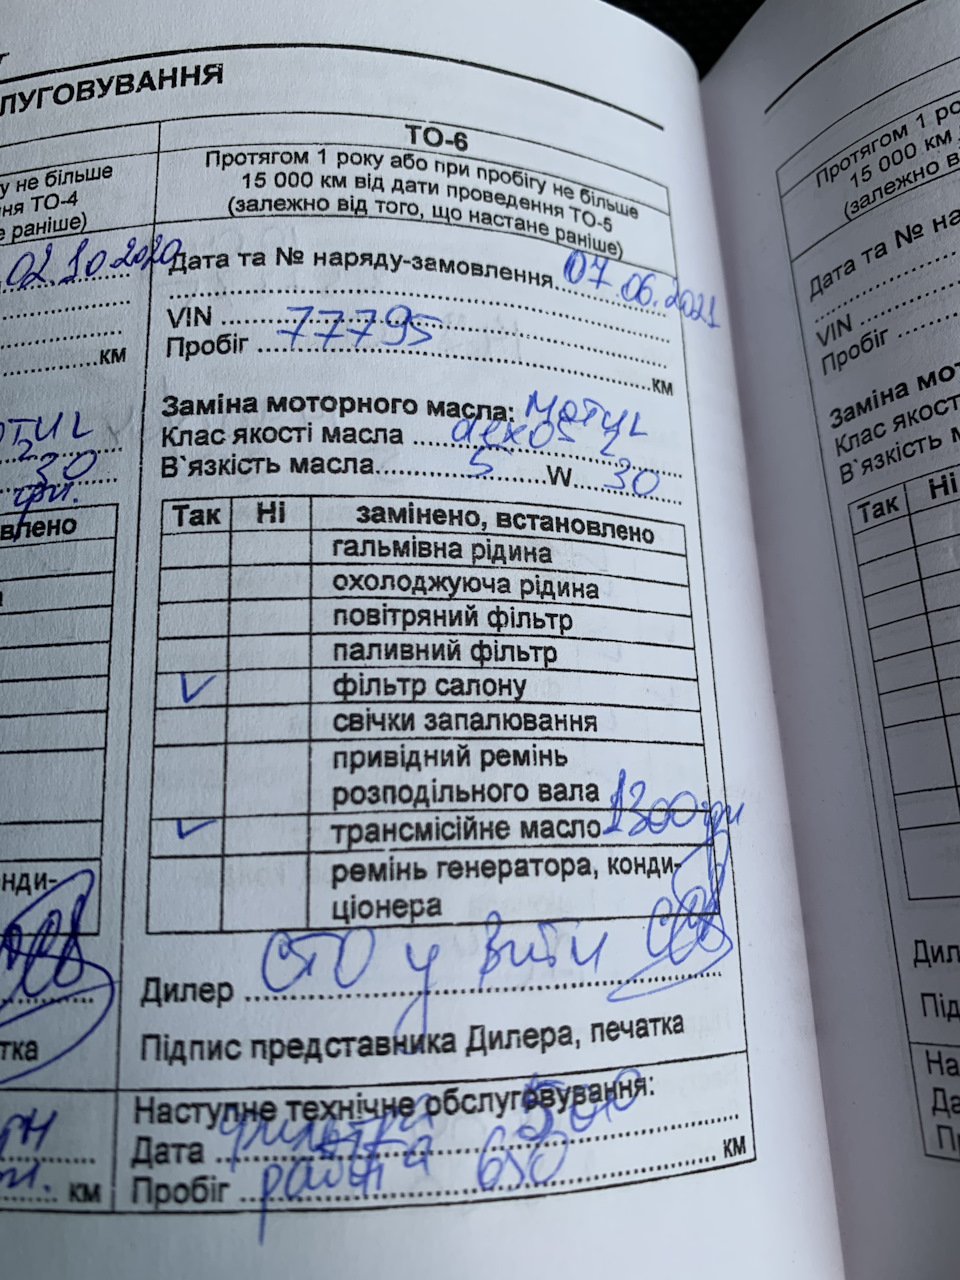 ЛУГОВУВАННЯ
у не більше
ня ТО-4
е раніше)
02.10.2020
км
30
грн.
овлено
нди-
тка
км
ТО-6
Протягом 1 року або при пробігу не більше
15 000 км від дати проведення ТО-5
(залежно від того, що настане раніше)
Дата та № наряду-замовлення 07.06.2021
VIN
Пробіг 77795 км
Заміна моторного масла: МОТUL
Клас якості масла dexos 2
В`язкість масла 5 W 30
Так Ні замінено, встановлено
гальмівна рідина
охолоджуюча рідина
повітряний фільтр
паливний фільтр
фільтр салону
свічки запалювання
привідний ремінь
розподільного вала
трансмісійне масло 1300грн
ремінь генератора, конди-
ціонера
Дилер СТО у Виті
Підпис представника Дилера, печатка
Наступне технічне обслуговування:
Дата
Пробіг 650 км
Протягом 1 ро
15 000 км
(залежно в
Дата та № на
VIN
Пробіг
Заміна мот
Клас якост
В`язкість м
Так Ні
Дил
Під
На
Да